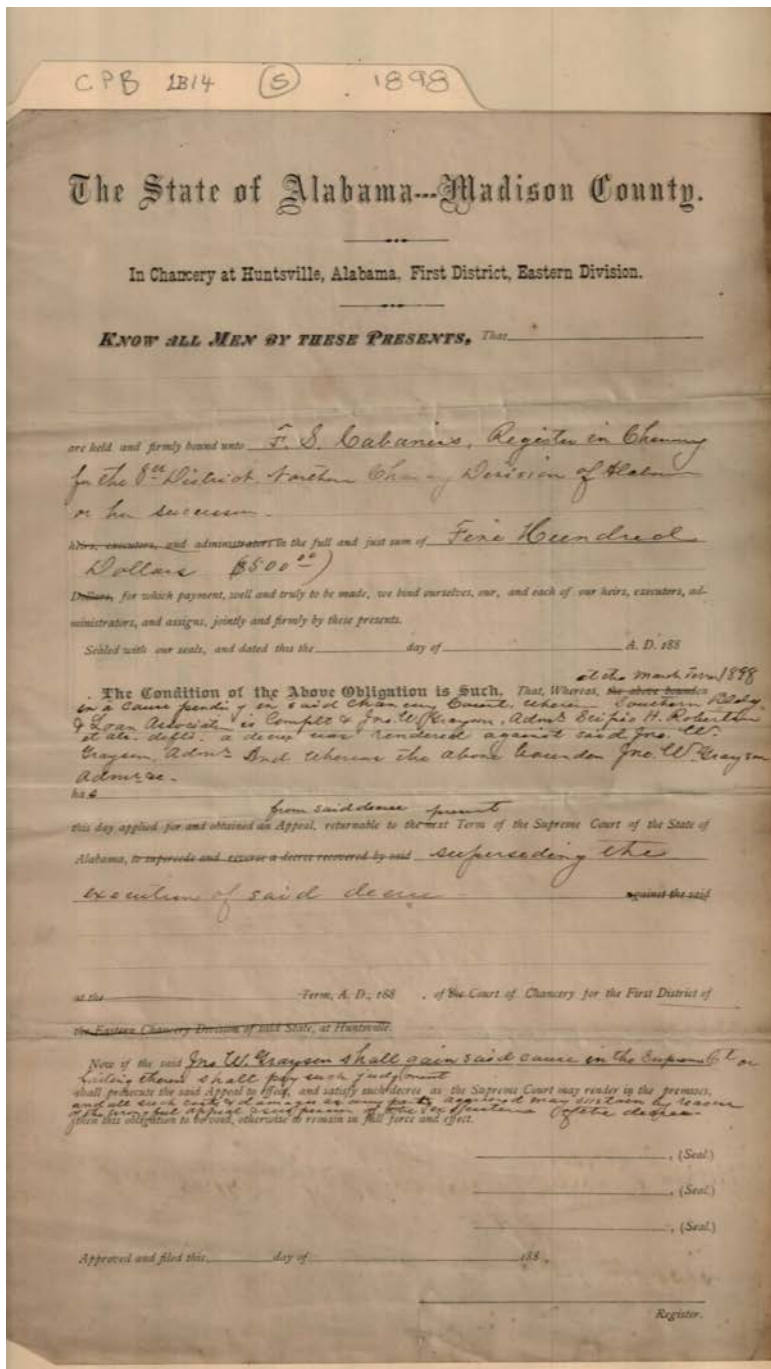 CPB 2B14 (5) . 1898
The State of Alabama---Madison County.
In Chancery at Huntsville, Alabama, First District, Eastern Division.
KNOW ALL MEN BY THESE PRESENTS, That
are held and firmly bound unto F. S. Cabaniss, Register in Chancery
for the 8th District, Northern Chancery Division of Alabama
or her successor.
heirs, executors, and administrators in the full and just sum of Five Hundred
Dollars ($500.00)
Dollars, for which payment, well and truly to be made, we bind ourselves, our, and each of our heirs, executors, ad-
ministrators, and assigns, jointly and firmly by these presents.
Sealed with our seals, and dated this the day of A. D. 188
at the March Term 1898
The Condition of the Above Obligation is Such, That, Whereas, the above bounden
in a cause pending in said Chancery Court, wherein Southern Bldg.
& Loan Association is Complt & Jno. W. Grayson, Admr. Scipio H. Robertson
et als. defts. a decree was rendered against said Jno. W.
Grayson, Admr. And whereas the above bounden Jno. W. Grayson
Admr. &c.
has
from said decree present
this day applied for and obtained an Appeal, returnable to the next Term of the Supreme Court of the State of
Alabama, to supercede and reverse a decree recovered by said superseding the
execution of said decree against the said
at the Term, A. D., 188 , of the Court of Chancery for the First District of
the Eastern Chancery Division of said State, at Huntsville.
Now if the said Jno W. Grayson shall gain said cause in the Supreme Ct. or
failing therein shall pay such judgment
shall prosecute the said Appeal to effect, and satisfy such decree as the Supreme Court may render in the premises,
and all such costs & damages as any party aggrieved may sustain by reason
of the wrongful appeal & suspension of the execution of the decree
then this obligation to be void, otherwise to remain in full force and effect.
, (Seal.)
, (Seal.)
, (Seal.)
Approved and filed this day of 188 .
Register.